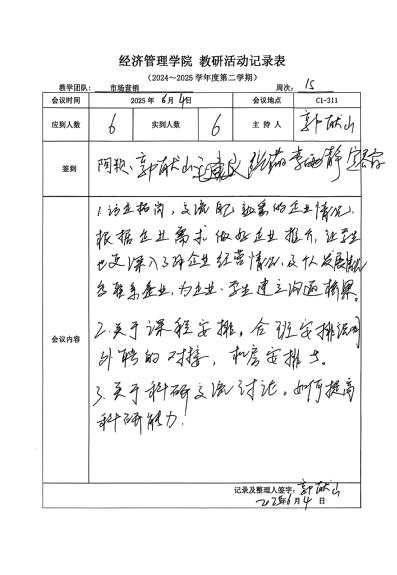 经济管理学院 教研活动记录表
（2024～2025 学年度第二学期）
教学团队： 市场营销 周次： 15
会议时间 2025 年 6 月 4 日 会议地点 C1-311
应到人数 6 实到人数 6 主 持 人 郭献山
签到 郭献山 静
会议内容
1. 访企拓岗，交流 的企业情况，
根据企业需求做好企业推介，让学生
也更深入了解企业经营情况，及个人发展
多联系企业，为企业、学生建立沟通桥梁。
2. 关于课程安排，合班安排
外聘的对接，机房安排
3. 关于科研交流讨论，如何提高
科研能力！
记录及整理人签字：郭献山
2025年 6 月 4 日